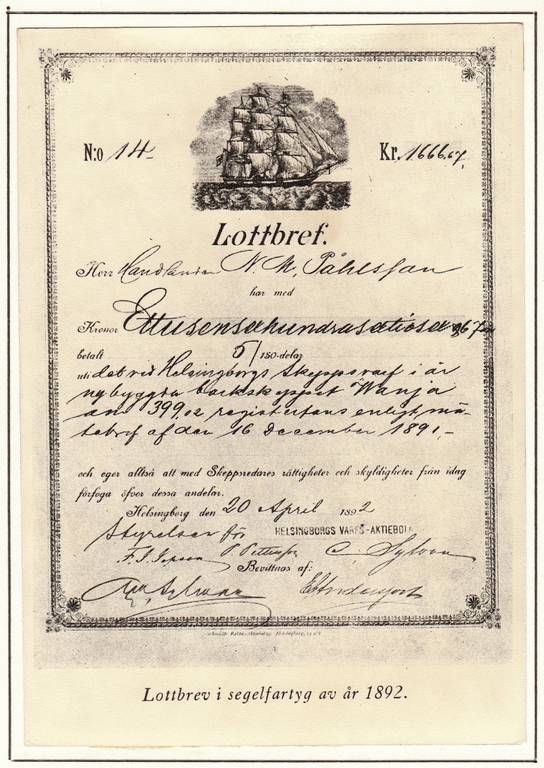 N:o 14
Kr. 1666,67.
Lottbref.
Herr Handlanden N. M. Påhlsson
har med
Kronor Ettusensexhundrasextiosex 67
betalt 5/150-delar
uti det vid Helsingborgs Skeppsvarf i år
nybyggda barkskeppet Wanja
om 399,02 registertons enligt mä-
tebref af den 16 December 1891,-
och eger alltså att med Skeppsredares rättigheter och skyldigheter från idag
förfoga öfver dessa andelar.
Helsingborg den 20 April 1892
Styrelsen för HELSINGBORGS VARFS-AKTIEBOL
P. Pettersson C. Sylvan
Bevittnas af:
Lottbrev i segelfartyg av år 1892.